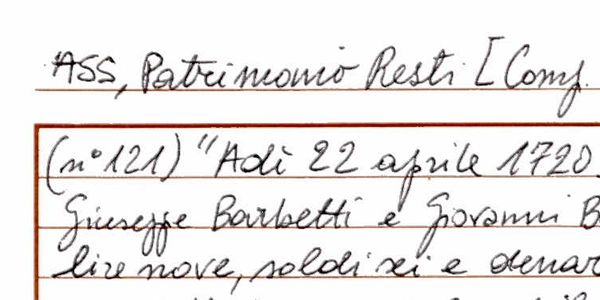 ASS, Patrimonio Resti [Cong.
(n° 121) "Adì 22 aprile 1720
Giuseppe Barbetti e Giovanni B
lire nove, soldi sei e denar